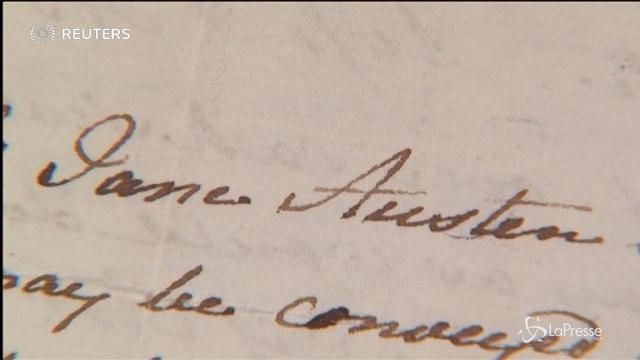 REUTERS
Jane Austen
may be
LaPresse